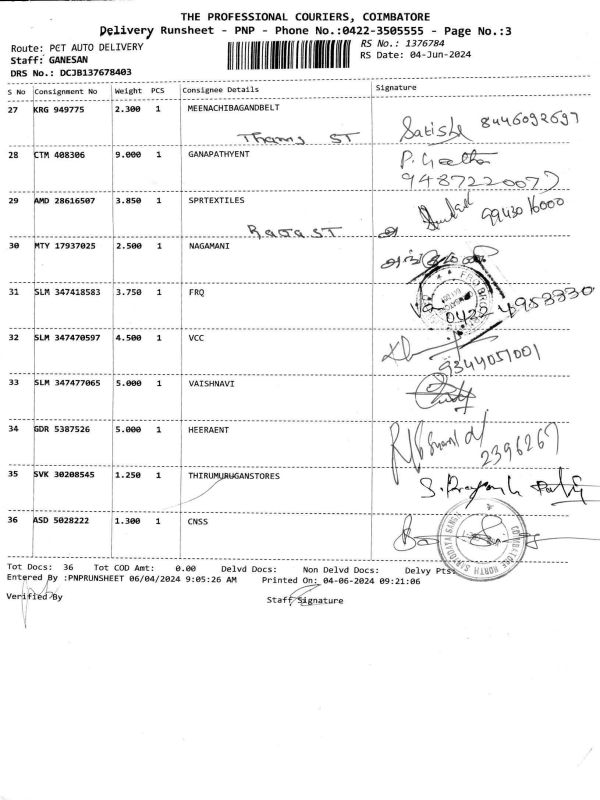 THE PROFESSIONAL COURIERS, COIMBATORE
Delivery Runsheet - PNP - Phone No.:0422-3505555 - Page No.:3
Route: PCT AUTO DELIVERY
RS No.: 1376784
Staff: GANESAN
RS Date: 04-Jun-2024
DRS No.: DCJB137678403
S No Consignment No Weight PCS Consignee Details Signature
27 KRG 949775 2.300 1 MEENACHIBAGANDBELT
ST Satish 8446092697
28 CTM 408306 9.000 1 GANAPATHYENT
P. Geetha
9487220077
29 AMD 28616507 3.850 1 SPRTEXTILES
Raja ST 9943016000
30 MTY 17937025 2.500 1 NAGAMANI
31 SLM 347418583 3.750 1 FRQ
0422 4953330
32 SLM 347470597 4.500 1 VCC
9344051001
33 SLM 347477065 5.000 1 VAISHNAVI
34 GDR 5387526 5.000 1 HEERAENT
2396267
35 SVK 30208545 1.250 1 THIRUMURUGANSTORES
36 ASD 5028222 1.300 1 CNSS
COIMBATORE NORTH
Tot Docs: 36 Tot COD Amt: 0.00 Delvd Docs: Non Delvd Docs: Delvy Pts:
Entered By :PNPRUNSHEET 06/04/2024 9:05:26 AM Printed On: 04-06-2024 09:21:06
Verified By Staff Signature